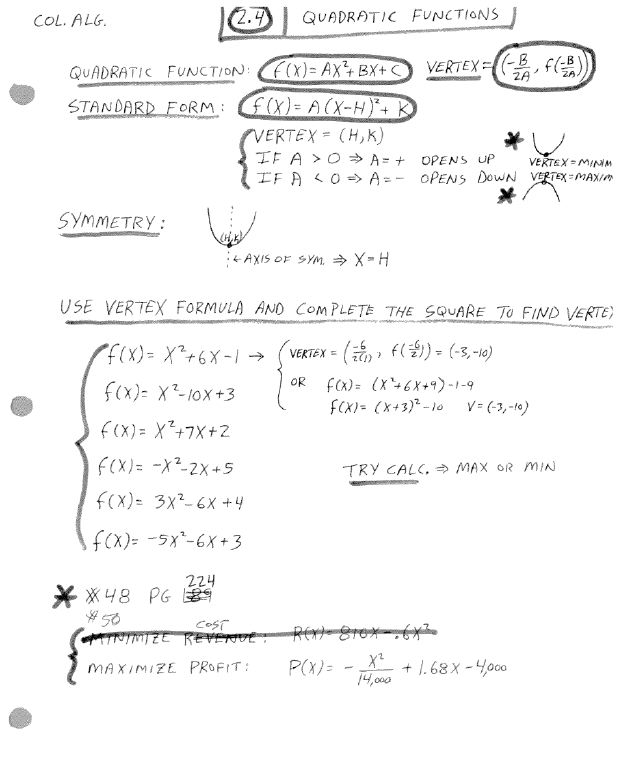 COL. ALG. 2.4 QUADRATIC FUNCTIONS
QUADRATIC FUNCTION: f(X)=AX²+BX+C VERTEX = (-B/2A, f(-B/2A))
STANDARD FORM: f(X)=A(X-H)²+K
VERTEX = (H,K)
IF A > 0 ⇒ A=+ OPENS UP VERTEX=MINIM
IF A < 0 ⇒ A=- OPENS DOWN VERTEX=MAXIM
SYMMETRY: (H,K)
←AXIS OF SYM. ⇒ X=H
USE VERTEX FORMULA AND COMPLETE THE SQUARE TO FIND VERTEX
f(X)= X²+6X-1 → VERTEX = (-6/2(1), f(-6/2)) = (-3,-10)
OR f(X)= (X²+6X+9)-1-9
f(X)= X²-10X+3
f(X)= (X+3)²-10 V=(-3,-10)
f(X)= X²+7X+2
f(X)= -X²-2X+5 TRY CALC. ⇒ MAX OR MIN
f(X)= 3X²-6X+4
f(X)= -5X²-6X+3
224
#48 PG 189
#50
COST
MINIMIZE REVENUE: R(X)= 810X-.6X²
MAXIMIZE PROFIT: P(X)= - X²/14,000 + 1.68X - 4,000